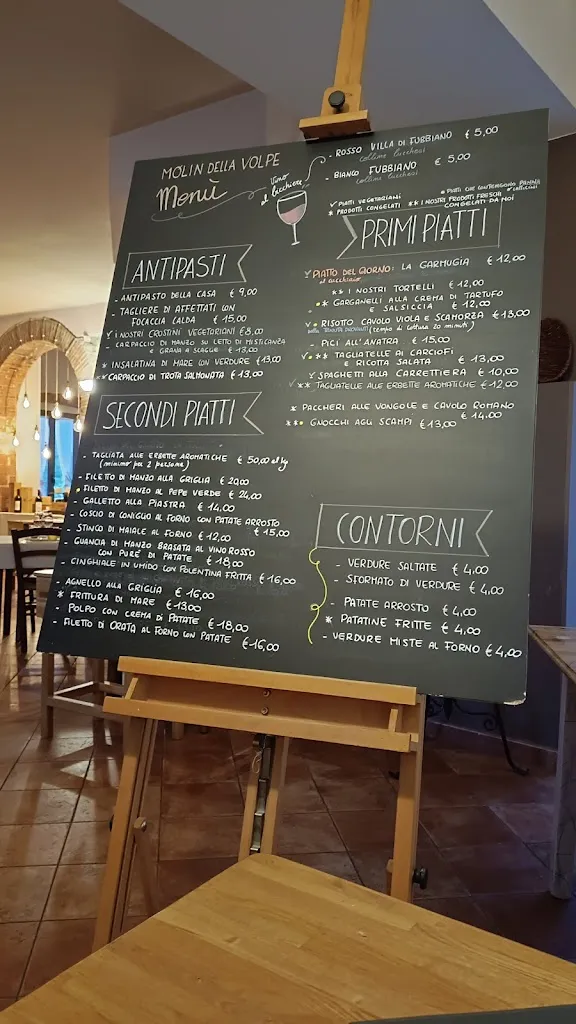 MOLIN DELLA VOLPE
Menù
Vino al bicchiere
- ROSSO VILLA DI FUBBIANO € 5,00
colline lucchesi
- BIANCO FUBBIANO € 5,00
colline lucchesi
✓ PIATTI VEGETARIANI
• PIATTI CHE CONTENGONO PANNA
* PRODOTTI CONGELATI
** I NOSTRI PRODOTTI FRESCHI
CONGELATI DA NOI
ANTIPASTI
- ANTIPASTO DELLA CASA € 9,00
- TAGLIERE DI AFFETTATI CON
FOCACCIA CALDA € 15,00
✓ I NOSTRI CROSTINI VEGETARIANI € 8,00
CARPACCIO DI MANZO SU LETTO DI MISTICANZA
E GRANA A SCAGLIE € 13,00
* INSALATINA DI MARE CON VERDURE € 13,00
* CARPACCIO DI TROTA SALMONATA € 13,00
SECONDI PIATTI
- TAGLIATA ALLE ERBETTE AROMATICHE € 50,00 al kg
(minimo per 2 persone)
- FILETTO DI MANZO ALLA GRIGLIA € 20,00
• FILETTO DI MANZO AL PEPE VERDE € 24,00
- GALLETTO ALLA PIASTRA € 14,00
- COSCIO DI CONIGLIO AL FORNO CON PATATE ARROSTO
€ 15,00
- STINCO DI MAIALE AL FORNO € 12,00
- GUANCIA DI MANZO BRASATA AL VINO ROSSO
CON PURÈ DI PATATE € 18,00
- CINGHIALE IN UMIDO CON POLENTINA FRITTA € 16,00
- AGNELLO ALLA GRIGLIA € 16,00
* FRITTURA DI MARE € 13,00
- POLPO CON CREMA DI PATATE € 18,00
- FILETTO DI ORATA AL FORNO CON PATATE € 16,00
PRIMI PIATTI
✓ PIATTO DEL GIORNO: LA GARMUGIA € 12,00
al cucchiaio
** I NOSTRI TORTELLI € 12,00
• * GARGANELLI ALLA CREMA DI TARTUFO
E SALSICCIA € 12,00
✓ • RISOTTO CAVOLO VIOLA E SCAMORZA € 13,00
(tempo di cottura 20 minuti)
- PICI ALL'ANATRA € 15,00
✓ • ** TAGLIATELLE AI CARCIOFI
E RICOTTA SALATA € 13,00
✓ SPAGHETTI ALLA CARRETTIERA € 10,00
✓ ** TAGLIATELLE ALLE ERBETTE AROMATICHE € 12,00
* PACCHERI ALLE VONGOLE E CAVOLO ROMANO
€ 14,00
** • GNOCCHI AGLI SCAMPI € 13,00
CONTORNI
- VERDURE SALTATE € 4,00
- SFORMATO DI VERDURE € 4,00
- PATATE ARROSTO € 4,00
* PATATINE FRITTE € 4,00
- VERDURE MISTE AL FORNO € 4,00